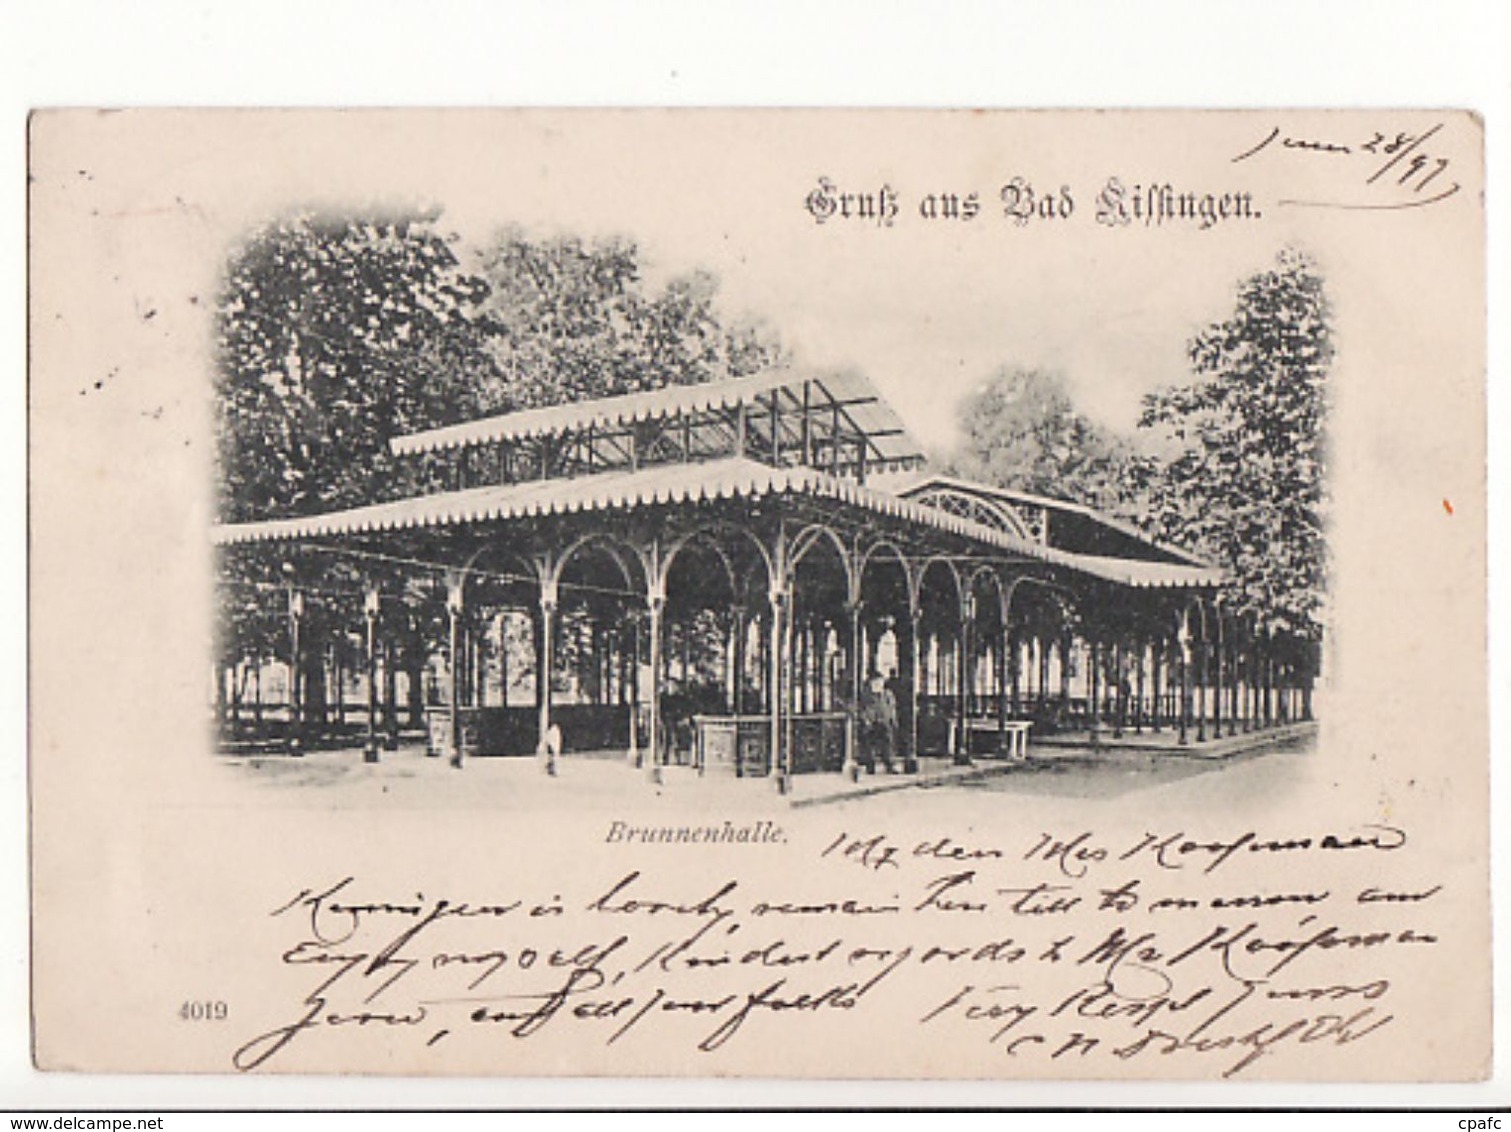 June 28/97
Gruß aus Bad Kissingen.
Brunnenhalle.
My dear Mrs Koofman
Kissingen is lovely, remain here till to morrow am
Enjoy myself, Kindest regards to Mr Koofman
and all your folks Very Respf Yours
4019
C H
www.delcampe.net
cpafc